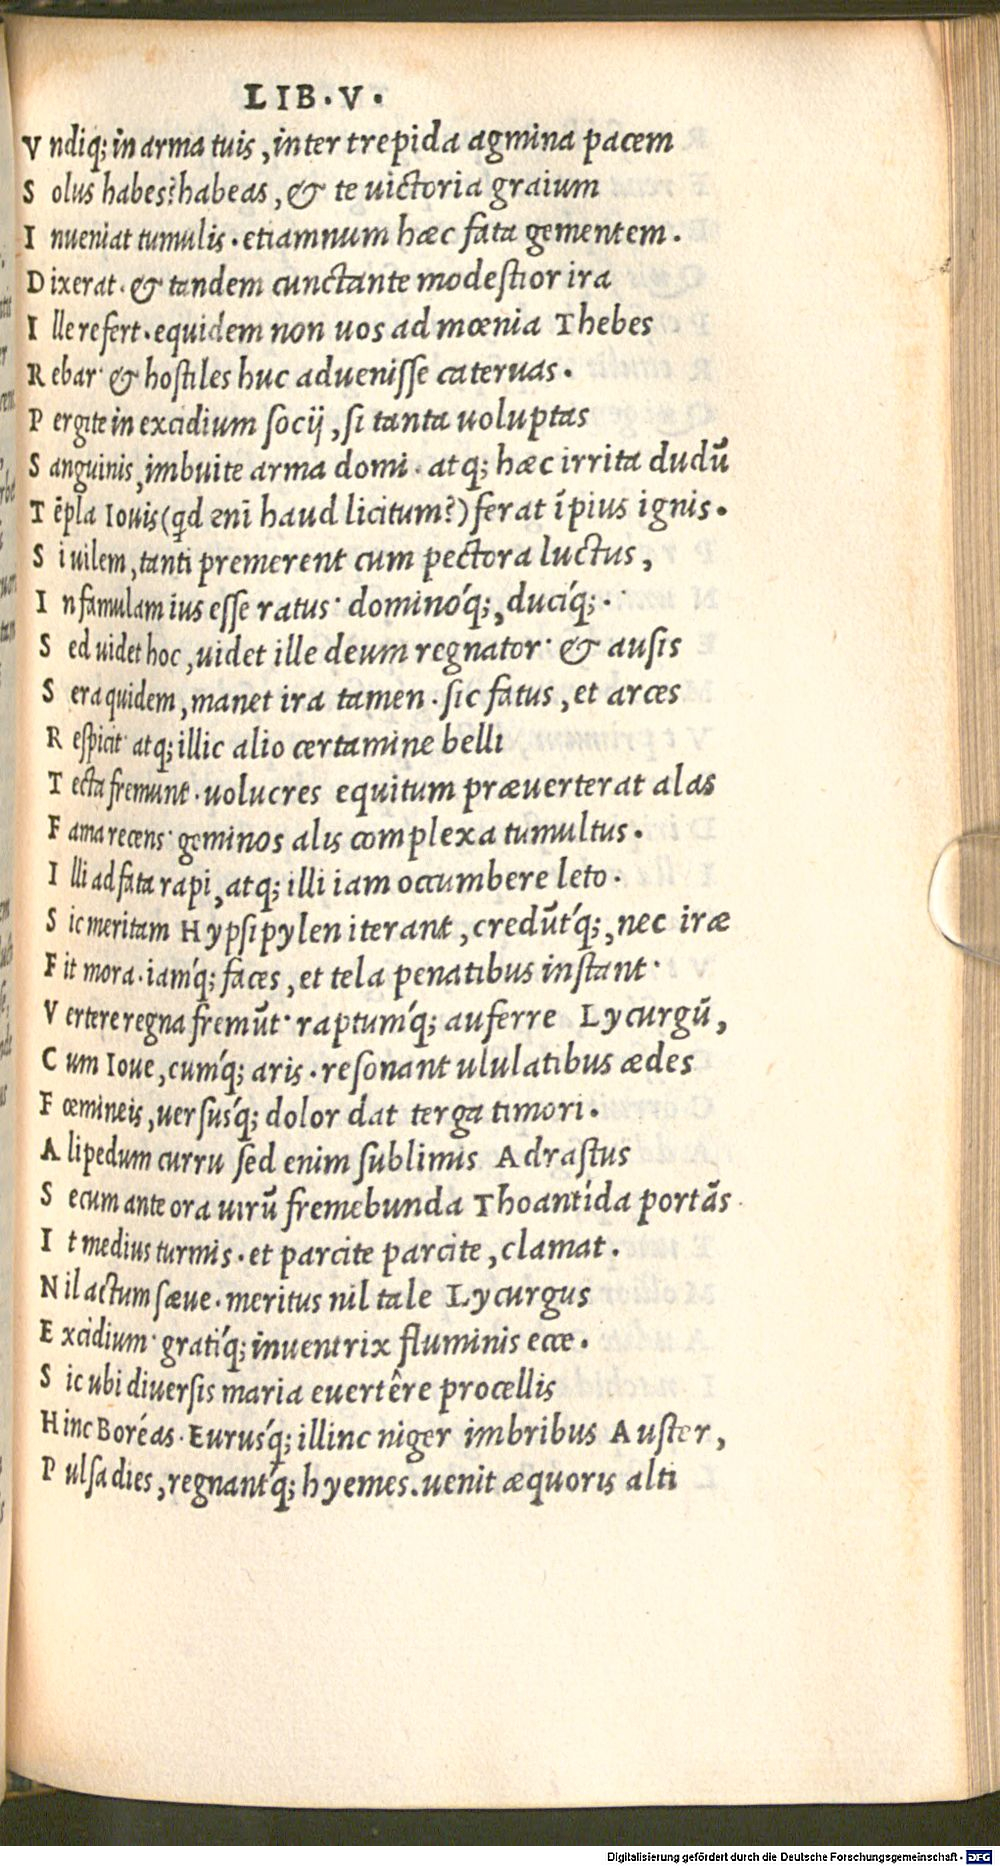 LIB.V.
Vndiq; in arma tuis, inter trepida agmina pacem
Solus habes? habeas, & te uictoria graium
Inueniat tumulis. etiamnum hæc fata gementem.
Dixerat. & tandem cunctante modestior ira
Ille refert. equidem non uos ad mœnia Thebes
Rebar· & hostiles huc aduenisse cateruas.
Pergite in excidium socij, si tanta uoluptas
Sanguinis, imbuite arma domi. atq; hæc irrita dudū
Tēpla Iouis (qd eni haud licitum?) ferat īpius ignis.
Si uilem, tanti premerent cum pectora luctus,
In famulam ius esse ratus· dominóq;, ducíq;.
Sed uidet hoc, uidet ille deum regnator· & ausis
Sera quidem, manet ira tamen. sic fatus, et arces
Respicit· atq; illic alio certamine belli
Tecta fremunt. uolucres equitum præuerterat alas
Fama recens· geminos alis complexa tumultus.
Illi ad fata rapi, atq; illi iam occumbere leto.
Sic meritam Hypsipylen iterant, credūt́q;, nec iræ
Fit mora. iaḿq; faces, et tela penatibus instant·
Vertere regna fremūt· raptuḿq; auferre Lycurgū,
Cum Ioue, cuḿq; aris. resonant ululatibus ædes
Fœmineis, uersuśq; dolor dat terga timori.
Alipedum curru sed enim sublimis Adrastus
Secum ante ora uirū fremebunda Thoantida portās
It medius turmis. et parcite parcite, clamat.
Nil actum sæue. meritus nil tale Lycurgus
Excidium· gratíq; inuentrix fluminis ecce.
Sic ubi diuersis maria euertêre procellis
Hinc Boréas. Euruśq; illinc niger imbribus Auster,
Pulsa dies, regnant́q; hyemes. uenit æquoris alti
Digitalisierung gefördert durch die Deutsche Forschungsgemeinschaft - DFG